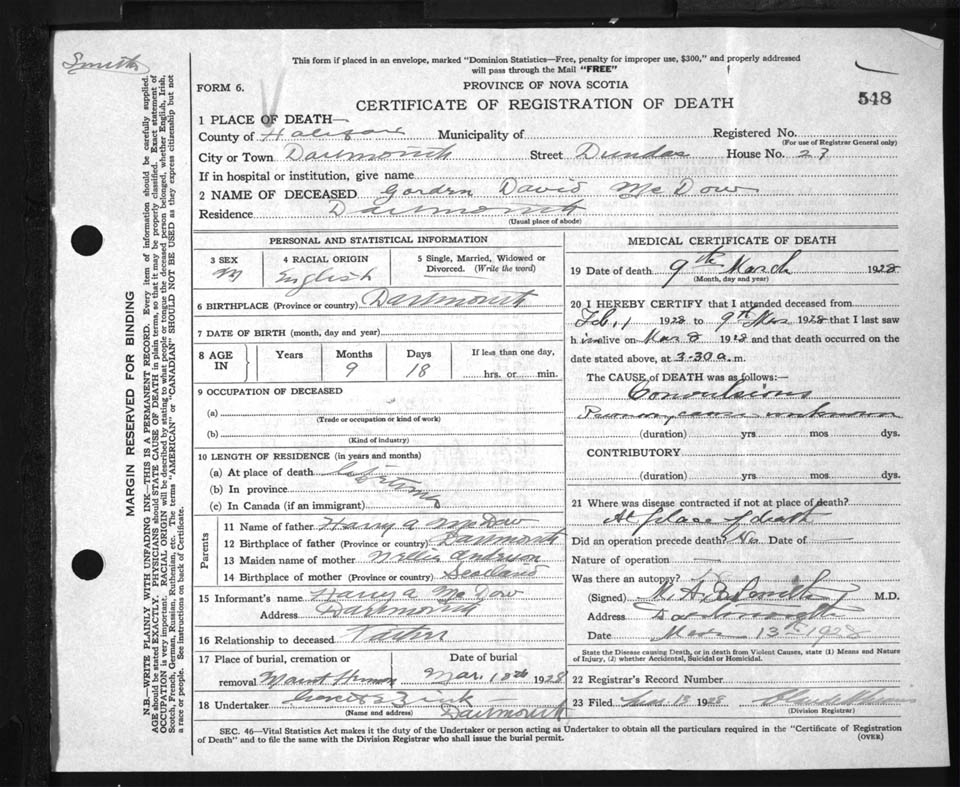 Smith
This form if placed in an envelope, marked "Dominion Statistics—Free, penalty for improper use, $300," and properly addressed
will pass through the Mail "FREE"
FORM 6.
PROVINCE OF NOVA SCOTIA
CERTIFICATE OF REGISTRATION OF DEATH
548
1 PLACE OF DEATH—
County of Halifax Municipality of Registered No.
(For use of Registrar General only)
City or Town Dartmouth Street Dundas House No. 27
If in hospital or institution, give name
2 NAME OF DECEASED Gordon David McDow
Residence Dartmouth
(Usual place of abode)
PERSONAL AND STATISTICAL INFORMATION
3 SEX 4 RACIAL ORIGIN 5 Single, Married, Widowed or
Divorced. (Write the word)
M English
6 BIRTHPLACE (Province or country) Dartmouth
7 DATE OF BIRTH (month, day and year)
8 AGE IN Years Months Days If less than one day,
9 18 hrs. or min.
9 OCCUPATION OF DECEASED
(a)
(Trade or occupation or kind of work)
(b)
(Kind of industry)
10 LENGTH OF RESIDENCE (in years and months)
(a) At place of death
(b) In province
(c) In Canada (if an immigrant)
Parents
11 Name of father Harry A McDow
12 Birthplace of father (Province or country) Dartmouth
13 Maiden name of mother Nellie Anderson
14 Birthplace of mother (Province or country) Scotland
15 Informant's name Harry A McDow
Address Dartmouth
16 Relationship to deceased
17 Place of burial, cremation or Date of burial
removal Mount Hermon Mar. 1928
18 Undertaker
(Name and address) Dartmouth
MEDICAL CERTIFICATE OF DEATH
19 Date of death 9th March 1928
(Month, day and year)
20 I HEREBY CERTIFY that I attended deceased from
Feb 11 1928 to 9th Mar 1928 that I last saw
him alive on Mar 8 1928 and that death occurred on the
date stated above, at 3-30 a. m.
The CAUSE of DEATH was as follows:—
Convulsions
Primary cause unknown
(duration) yrs mos dys.
CONTRIBUTORY
(duration) yrs mos dys.
21 Where was disease contracted if not at place of death?
At place of death
Did an operation precede death? No Date of —
Nature of operation —
Was there an autopsy?
(Signed) Smith M.D.
Address Dartmouth
Date Mar 13th 1928
State the Disease causing Death, or in death from Violent Causes, state (1) Means and Nature
of Injury, (2) whether Accidental, Suicidal or Homicidal.
22 Registrar's Record Number
23 Filed 13 1928
(Division Registrar)
SEC. 46—Vital Statistics Act makes it the duty of the Undertaker or person acting as Undertaker to obtain all the particulars required in the "Certificate of Registration
of Death" and to file the same with the Division Registrar who shall issue the burial permit. (OVER)
MARGIN RESERVED FOR BINDING
N.B.—WRITE PLAINLY WITH UNFADING INK—THIS IS A PERMANENT RECORD. Every item of information should be carefully supplied.
AGE should be stated EXACTLY. PHYSICIANS should STATE CAUSE OF DEATH in plain terms, so that it may be properly classified. Exact statement of
OCCUPATION is very important. RACIAL ORIGIN will be described by stating to what people or tongue the deceased person belonged, whether English, Irish,
Scotch, French, German, Russian, Ruthenian, etc. The terms "AMERICAN" or "CANADIAN" SHOULD NOT BE USED as they express citizenship but not
a race or people. See instructions on back of Certificate.